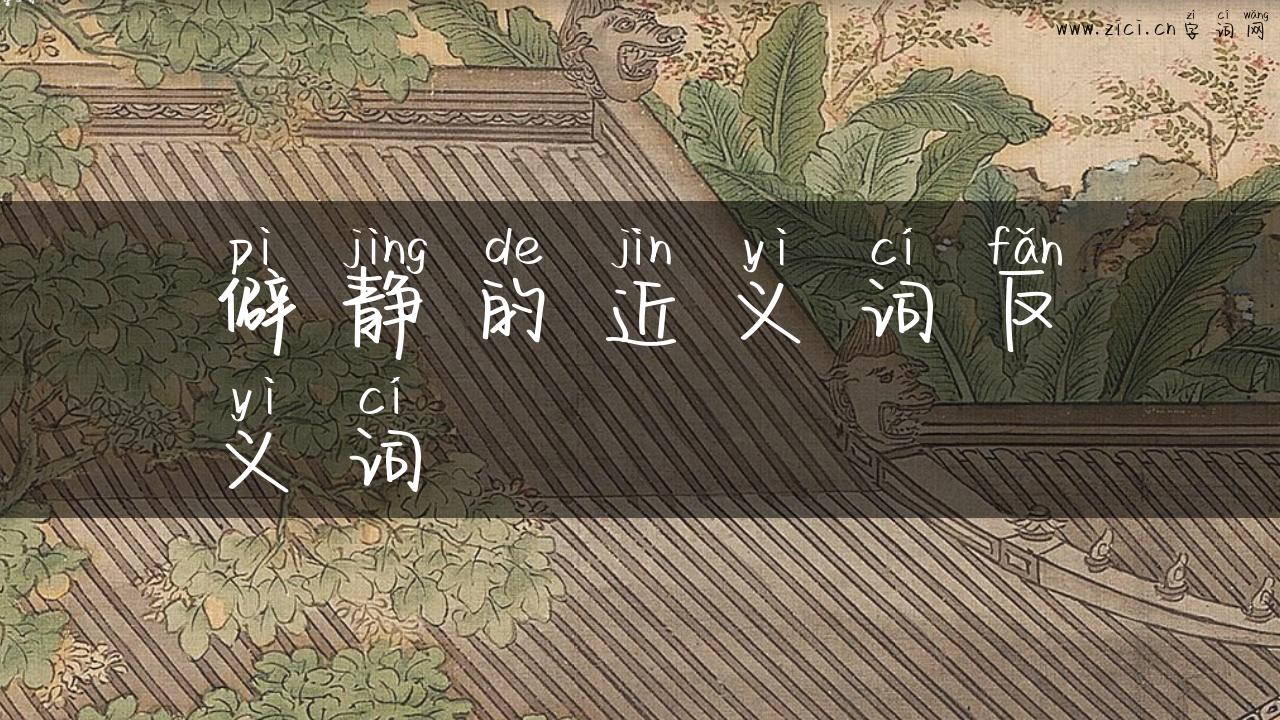 zì cí wǎng
www.zici.cn 字词网
pì jìng de jìn yì cí fǎn
僻静的近义词反
yì cí
义词